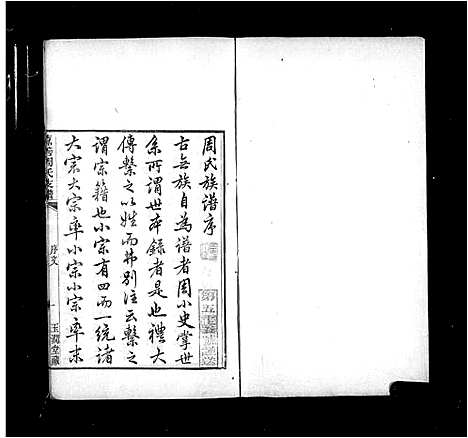 周氏族譜序
古無族自為譜者周小史掌世
系所謂世本錄者是也禮大
傳繫之以姓而弗別注云繫之
謂宗籍也小宗有四而一統諸
大宗大宗率小宗小宗率末
序文
一
玉潤堂藏